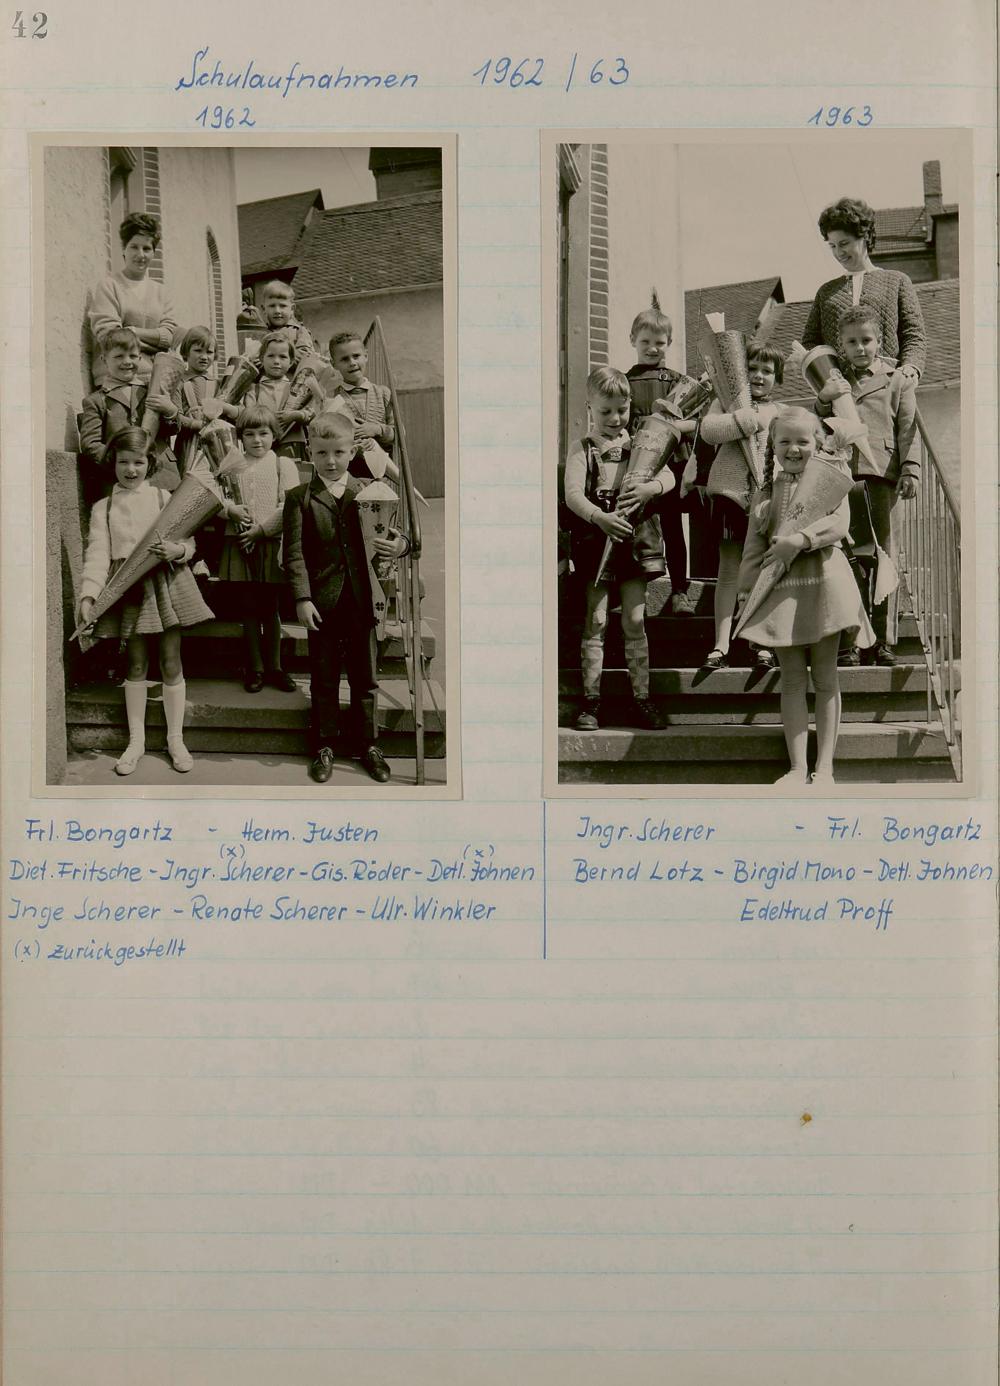 42
Schulaufnahmen 1962 / 63
1962
Frl. Bongartz - Herm. Justen
(x) (x)
Diet. Fritsche - Ingr. Scherer - Gis. Röder - Detl. Johnen
Inge Scherer - Renate Scherer - Ulr. Winkler
(x) zurückgestellt
1963
Ingr. Scherer - Frl. Bongartz
Bernd Lotz - Birgid Mono - Detl. Johnen
Edeltrud Proff